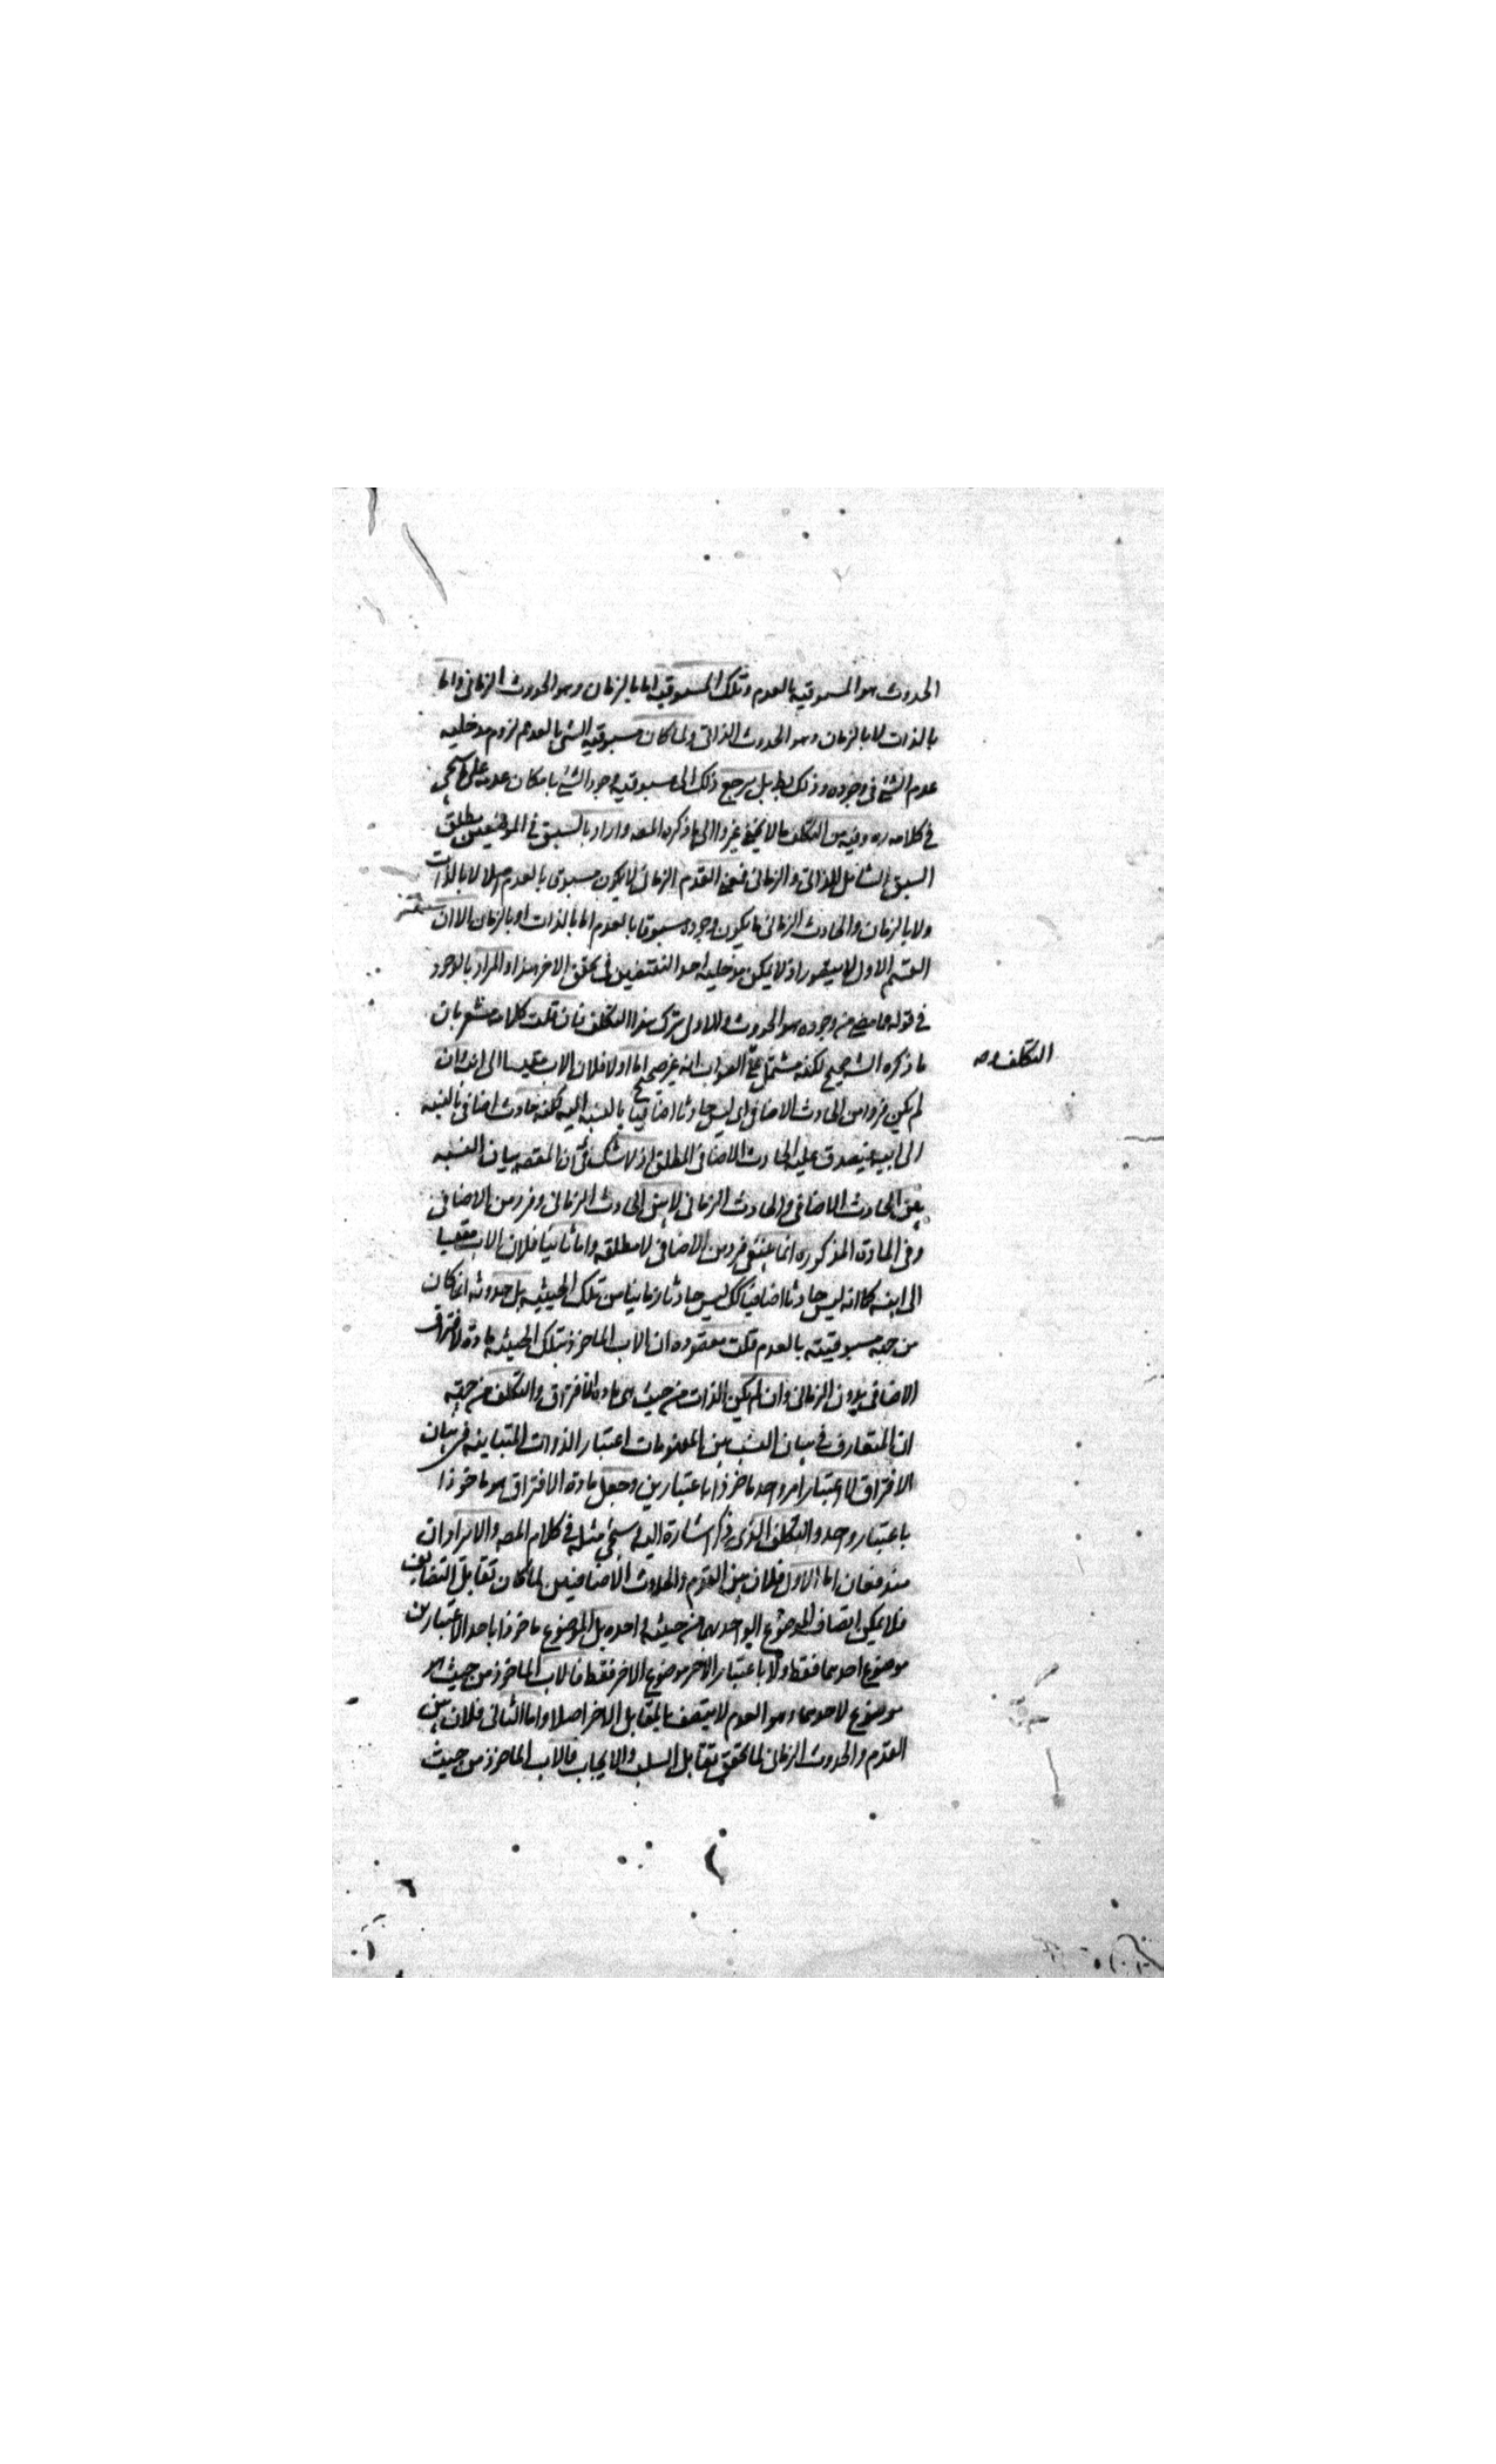 الحدوث هو المسبوقيه بالعدم وتلك المسبوقيه اما بالزمان وهو الحدوث الزمانى واما
بالذات لا بالزمان وهو الحدوث الذاتى ولما كان مسبوقيه الشئ بالعدم لزوم مدخليه
عدم الشئ فى وجوده وذلك بط بل يرجع ذلك الى مسبوقيه وجود الشئ بامكان عدمه على ما سيجئ
فى كلامه ره وفيه من التكلف ما لا يخفى غيروا الى ما ذكره المصه واراد بالسبق فى الموضعين مطلق
السبق الشامل للذاتى والزمانى فمعنى القدم الزمانى لا يكون مسبوق بالعدم اصلا لا بالذات
ولا بالزمان والحادث الزمانى ما يكون وجوده مسبوقا بالعدم اما بالذات او بالزمان الا ان
القسم الاول لا يتصور اذ لا يمكن مدخليه احد النقيضين فى تحقق الاخر هذا والمراد بالوجود
فى قوله ما مضى من وجوده هو الحدوث والاولى ترك هذا التكلف فان قلت كلامه مشعر بان
التكلف وصه
ما ذكره الشه صحيح لكنه مشتمل على الصواب انه غير صحيح اما اولا فلان الاب مقيسا الى ابنه وان
لم يكن فردا من الحادث الاضافى اى ليس حادثا اضافيا بالنسبه اليه لكنه حادث اضافى بالنسبه
الى ابيه فيصدق عليه الحادث الاضافى المطلق اذ لا شك فى ان المقصه بيان النسبه
بين الحادث الاضافى والحادث الزمانى لا بين الحادث الزمانى وفرد من الاضافى
وفى المادة المذكوره انما ينتفى فرد من الاضافى لا مطلقه واما ثانيا فلان الاب مقيسا
الى ابنه كما انه ليس حادثا اضافيا كك ليس حادثا زمانيا من تلك الحيثيه بل حدوثه انما كان
من جهه مسبوقيته بالعدم قلت مقصوده ان الاب الماخوذ بتلك الحيثيه مادة لافتراق
الاضافى بدون الزمانى وان لم يكن الذات من حيث هى ماده الافتراق والتكلف من جهة
ان المتعارف فى بيان النسب بين المفهومات اعتبار الذوات المتباينه فى بيان
الافتراق لا اعتبار امر واحد ماخوذا باعتبارين وجعل مادة الافتراق هو ماخوذا
باعتبار واحد والتكلف الذى ذكر اشارة اليه سيجئ مثله فى كلام المصه والايرادان
مندفعان اما الاول فلان بين القدم والحدوث الاضافيين لما كان تقابل التضايف
فلا يمكن اتصاف الموضوع الواحد بهما من حيثيه واحده بل الموضوع ماخوذا باحد الاعتبارين
موضوع احدهما فقط ولا باعتبار الاخر موضوع الاخر فقط فالاب الماخوذ من حيث هو
موضوع لاحدهما وهو العدم لا يتصف بالمقابل الاخر اصلا واما الثانى فلان بين
القدم والحدوث الزمانى لما تحقق تقابل السلب والايجاب فالاب الماخوذ من حيث